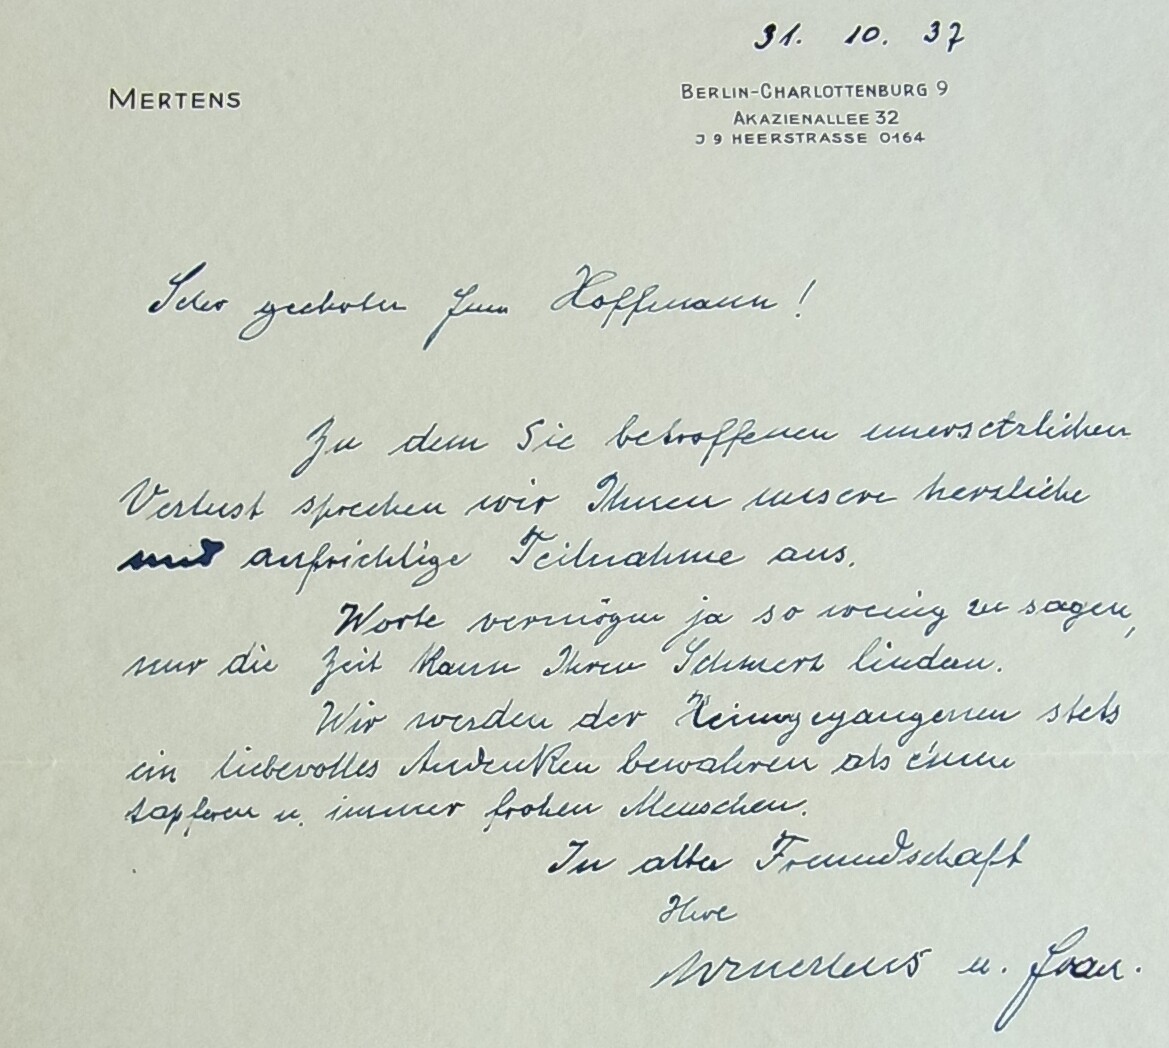 31. 10. 37
MERTENS
BERLIN-CHARLOTTENBURG 9
AKAZIENALLEE 32
J 9 HEERSTRASSE 0164
Sehr geehrter Herr Hoffmann!
Zu dem Sie betroffenen unersetzlichen
Verlust sprechen wir Ihnen unsere herzliche
und aufrichtige Teilnahme aus.
Worte vermögen ja so wenig zu sagen,
nur die Zeit kann Ihren Schmerz lindern.
Wir werden der Heimgegangenen stets
ein liebevolles Andenken bewahren als einen
tapferen u. immer frohen Menschen.
In alter Freundschaft
Ihre
Mertens u. Frau.